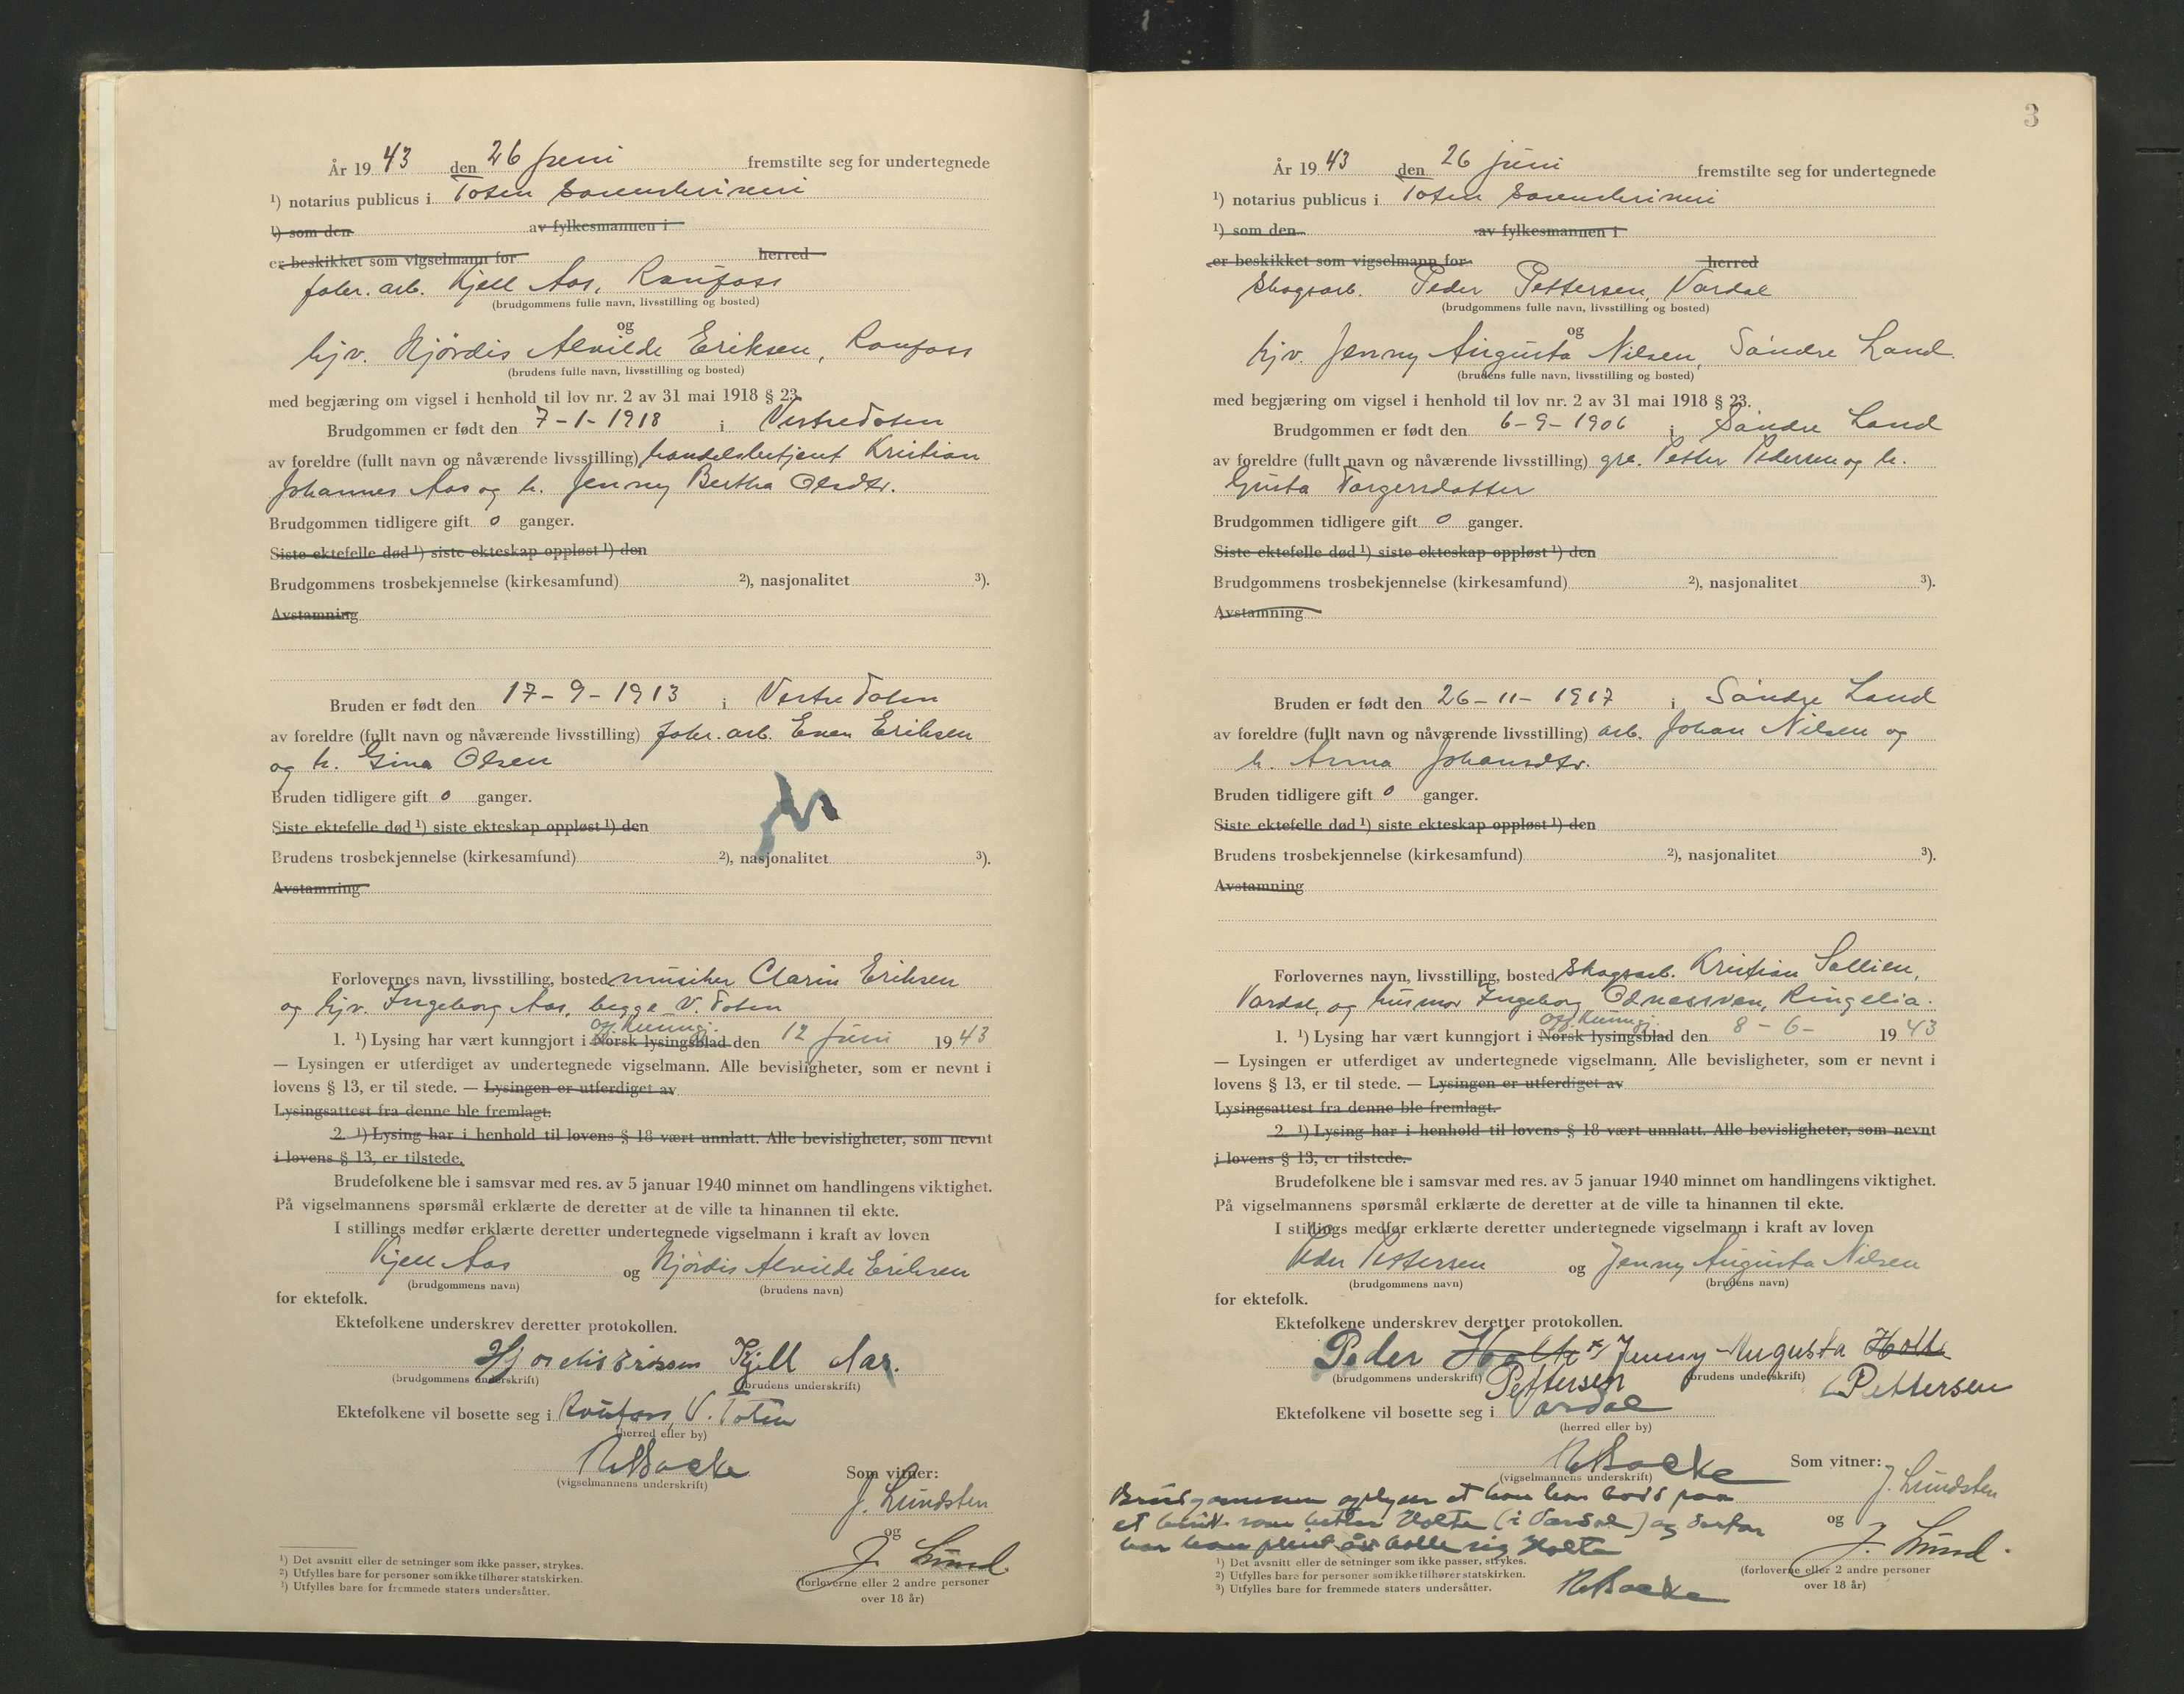 År 19 43 den 26 juni fremstilte seg for undertegnede
¹) notarius publicus i Toten sorenskriveri
¹) som den av fylkesmannen i
er beskikket som vigselmann for herred
fabr. arb. Kjell Aas, Raufoss
(brudgommens fulle navn, livsstilling og bosted)
og
hjv. Hjördis Alvilde Eriksen, Raufoss
(brudens fulle navn, livsstilling og bosted)
med begjæring om vigsel i henhold til lov nr. 2 av 31 mai 1918 § 23.
Brudgommen er født den 7-1-1918 i Vestre Toten
av foreldre (fullt navn og nåværende livsstilling) handelsbetjent Kristian
Johannes Aas og h. Jenny Bertha Olsdtr.
Brudgommen tidligere gift 0 ganger.
Siste ektefelle død ¹) siste ekteskap oppløst ¹) den
Brudgommens trosbekjennelse (kirkesamfund) ²), nasjonalitet ³).
Avstamning
Bruden er født den 17-9-1913 i Vestre Toten
av foreldre (fullt navn og nåværende livsstilling) fabr. arb. Even Eriksen
og h. Gina Olsen
Bruden tidligere gift 0 ganger.
Siste ektefelle død ¹) siste ekteskap oppløst ¹) den
Brudens trosbekjennelse (kirkesamfund) ²), nasjonalitet ³).
Avstamning
Forlovernes navn, livsstilling, bosted musiker Clarin Eriksen
og hjv. Ingeborg Aas, begge V. Toten
off. kunngj.
1. ¹) Lysing har vært kunngjort i Norsk lysingsblad den 12 juni 19 43
— Lysingen er utferdiget av undertegnede vigselmann. Alle bevisligheter, som er nevnt i
lovens § 13, er til stede. — Lysingen er utferdiget av
Lysingsattest fra denne ble fremlagt.
2. ¹) Lysing har i henhold til lovens § 18 vært unnlatt. Alle bevisligheter, som nevnt
i lovens § 13, er tilstede.
Brudefolkene ble i samsvar med res. av 5 januar 1940 minnet om handlingens viktighet.
På vigselmannens spørsmål erklærte de deretter at de ville ta hinannen til ekte.
I stillings medfør erklærte deretter undertegnede vigselmann i kraft av loven
Kjell Aas og Hjördis Alvilde Eriksen
(brudgommens navn) (brudens navn)
for ektefolk.
Ektefolkene underskrev deretter protokollen.
Hjördis Eriksen Kjell Aas.
(brudgommens underskrift) (brudens underskrift)
Ektefolkene vil bosette seg i Raufoss, V. Toten
(herred eller by)
(vigselmannens underskrift)
Som vitner:
J. Lundsten
og
J. Lund.
(forloverne eller 2 andre personer
over 18 år)
¹) Det avsnitt eller de setninger som ikke passer, strykes.
²) Utfylles bare for personer som ikke tilhører statskirken.
³) Utfylles bare for fremmede staters undersåtter.
3
År 19 43 den 26 juni fremstilte seg for undertegnede
¹) notarius publicus i Toten sorenskriveri
¹) som den av fylkesmannen i
er beskikket som vigselmann for herred
Skogsarb. Peder Pettersen, Vardal
(brudgommens fulle navn, livsstilling og bosted)
og
hjv. Jenny Augusta Nilsen, Søndre Land.
(brudens fulle navn, livsstilling og bosted)
med begjæring om vigsel i henhold til lov nr. 2 av 31 mai 1918 § 23.
Brudgommen er født den 6-9-1906 i Søndre Land
av foreldre (fullt navn og nåværende livsstilling) gbr. Petter Pedersen og h.
Gusta Torgersdatter
Brudgommen tidligere gift 0 ganger.
Siste ektefelle død ¹) siste ekteskap oppløst ¹) den
Brudgommens trosbekjennelse (kirkesamfund) ²), nasjonalitet ³).
Avstamning
Bruden er født den 26-11-1917 i Søndre Land
av foreldre (fullt navn og nåværende livsstilling) arb. Johan Nilsen og
h. Anna Johansdtr.
Bruden tidligere gift 0 ganger.
Siste ektefelle død ¹) siste ekteskap oppløst ¹) den
Brudens trosbekjennelse (kirkesamfund) ²), nasjonalitet ³).
Avstamning
Forlovernes navn, livsstilling, bosted Skogsarb. Kristian Sollien,
Vardal, og husmor Ingeborg Odnessveen, Ringelia.
off. kunngj.
1. ¹) Lysing har vært kunngjort i Norsk lysingsblad den 8-6- 19 43
— Lysingen er utferdiget av undertegnede vigselmann. Alle bevisligheter, som er nevnt i
lovens § 13, er til stede. — Lysingen er utferdiget av
Lysingsattest fra denne ble fremlagt.
2. ¹) Lysing har i henhold til lovens § 18 vært unnlatt. Alle bevisligheter, som nevnt
i lovens § 13, er tilstede.
Brudefolkene ble i samsvar med res. av 5 januar 1940 minnet om handlingens viktighet.
På vigselmannens spørsmål erklærte de deretter at de ville ta hinannen til ekte.
I stillings medfør erklærte deretter undertegnede vigselmann i kraft av loven
Peder Pettersen og Jenny Augusta Nilsen
(brudgommens navn) (brudens navn)
for ektefolk.
Ektefolkene underskrev deretter protokollen.
Peder Holte *) Jenny Augusta Holte
(brudgommens underskrift) Pettersen (brudens underskrift) Pettersen
Ektefolkene vil bosette seg i Vardal
(herred eller by)
(vigselmannens underskrift)
Som vitner:
J. Lundsten
og
J. Lund.
(forloverne eller 2 andre personer
over 18 år)
Brudgommen oplyser at han har bodd paa
et bruk som heter Holte (i Vardal) og derfor
har han pleiet å kalle sig Holte
¹) Det avsnitt eller de setninger som ikke passer, strykes.
²) Utfylles bare for personer som ikke tilhører statskirken.
³) Utfylles bare for fremmede staters undersåtter.